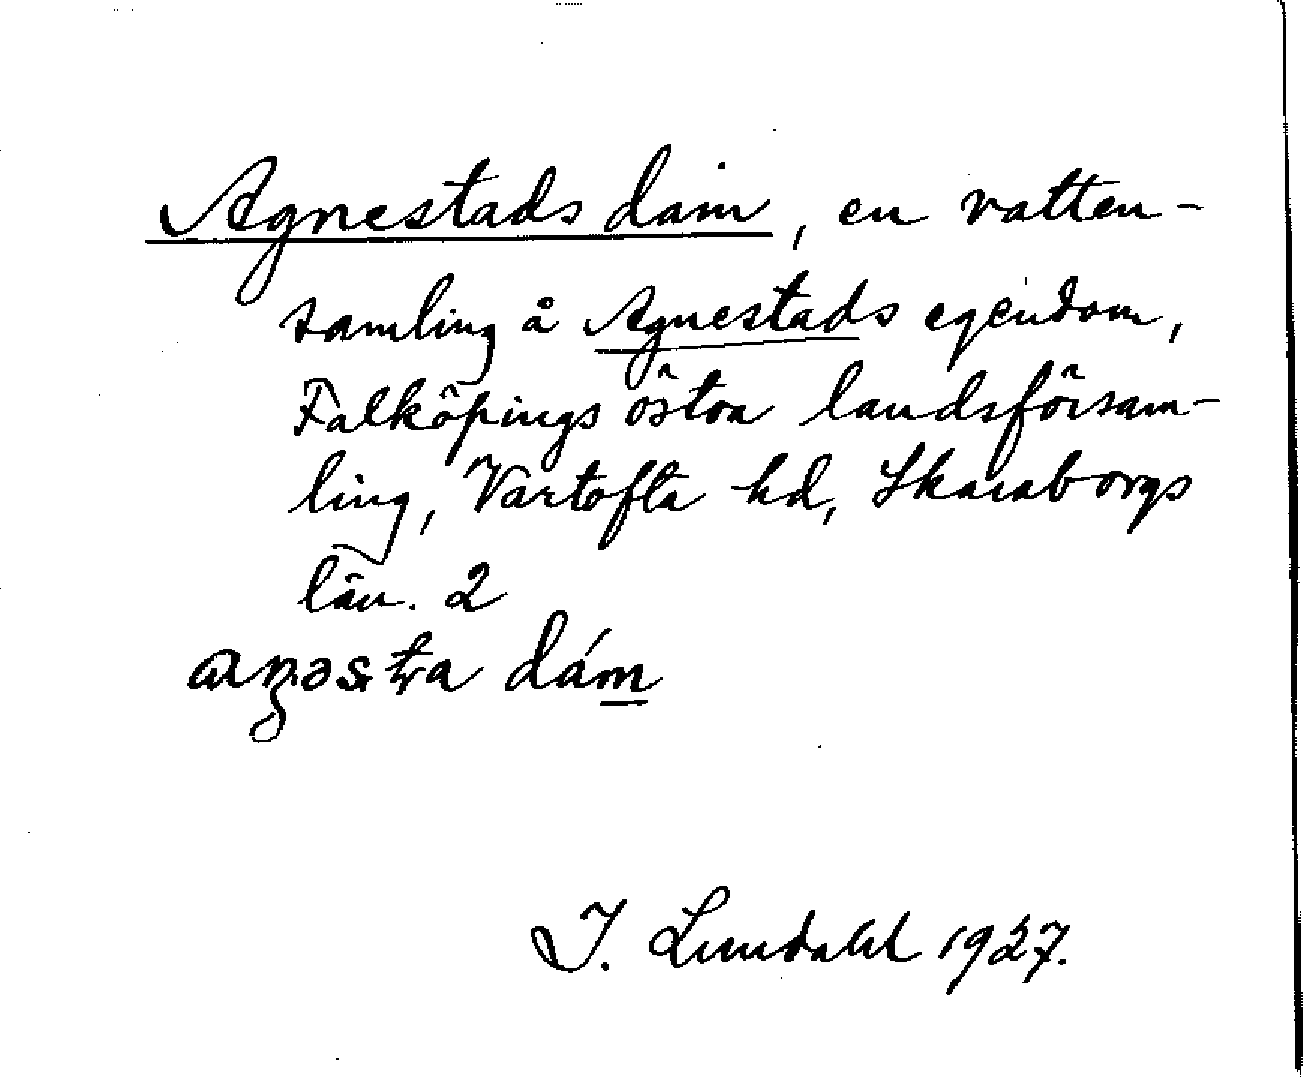 Agnestads dam, en vatten-
samling å Agnestads egendom,
Falköpings östra landsförsam-
ling, Vartofta hd, Skaraborgs
län. 2
dám
I. Lundahl 1927.